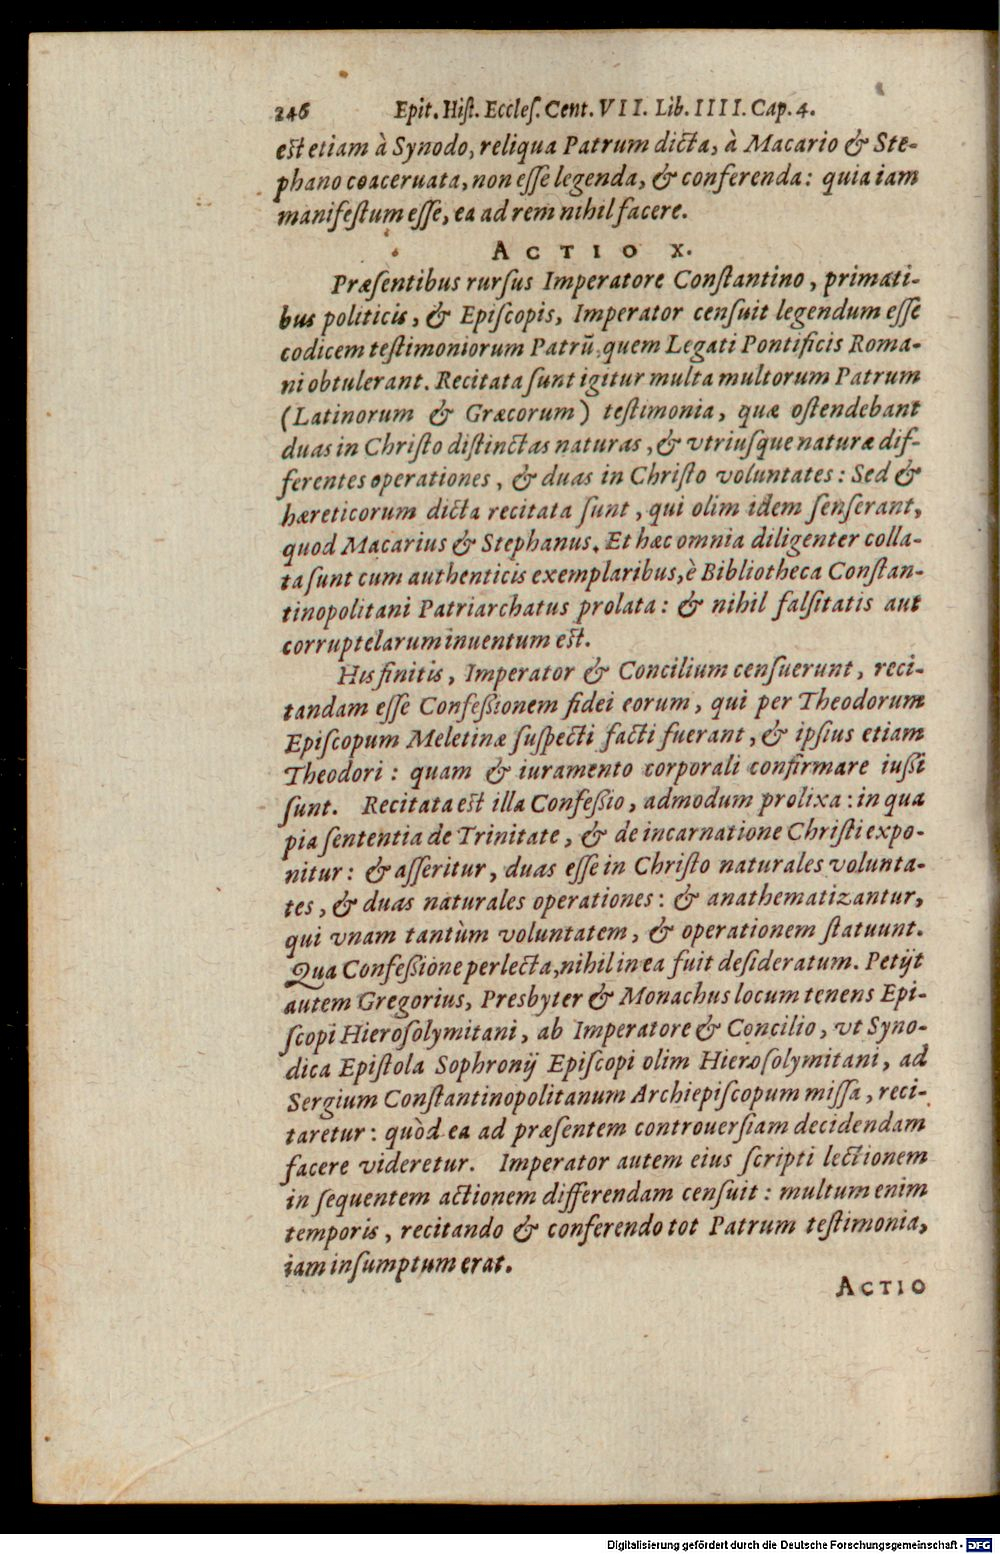 246 Epit. Hiſt. Eccleſ. Cent. VII. Lib. IIII. Cap. 4.
eſt etiam à Synodo, reliqua Patrum dicta, à Macario & Ste-
phano coaceruata, non eſſe legenda, & conferenda: quia iam
manifeſtum eſſe, ea ad rem nihil facere.
ACTIO X.
Præſentibus rurſus Imperatore Conſtantino, primati-
bus politicis, & Epiſcopis, Imperator cenſuit legendum eſſe
codicem teſtimoniorum Patrū, quem Legati Pontificis Roma-
ni obtulerant. Recitata ſunt igitur multa multorum Patrum
(Latinorum & Græcorum) teſtimonia, quæ oſtendebant
duas in Chriſto diſtinctas naturas, & vtriuſque naturæ dif-
ferentes operationes, & duas in Chriſto voluntates: Sed &
hæreticorum dicta recitata ſunt, qui olim idem ſenſerant,
quod Macarius & Stephanus. Et hæc omnia diligenter colla-
ta ſunt cum authenticis exemplaribus, è Bibliotheca Conſtan-
tinopolitani Patriarchatus prolata: & nihil falſitatis aut
corruptelarum inuentum eſt.
His finitis, Imperator & Concilium cenſuerunt, reci-
tandam eſſe Confeßionem fidei eorum, qui per Theodorum
Epiſcopum Meletinæ ſuſpecti facti fuerant, & ipſius etiam
Theodori: quam & iuramento corporali confirmare iußi
ſunt. Recitata eſt illa Confeßio, admodum prolixa: in qua
pia ſententia de Trinitate, & de incarnatione Chriſti expo-
nitur: & aſſeritur, duas eſſe in Chriſto naturales volunta-
tes, & duas naturales operationes: & anathematizantur,
qui vnam tantùm voluntatem, & operationem ſtatuunt.
Qua Confeßione perlecta, nihil in ea fuit deſideratum. Petijt
autem Gregorius, Presbyter & Monachus locum tenens Epi-
ſcopi Hieroſolymitani, ab Imperatore & Concilio, vt Syno-
dica Epiſtola Sophronij Epiſcopi olim Hieroſolymitani, ad
Sergium Conſtantinopolitanum Archiepiſcopum miſſa, reci-
taretur: quòd ea ad præſentem controuerſiam decidendam
facere videretur. Imperator autem eius ſcripti lectionem
in ſequentem actionem differendam cenſuit: multum enim
temporis, recitando & conferendo tot Patrum teſtimonia,
iam inſumptum erat.
ACTIO
Digitalisierung gefördert durch die Deutsche Forschungsgemeinschaft - DFG